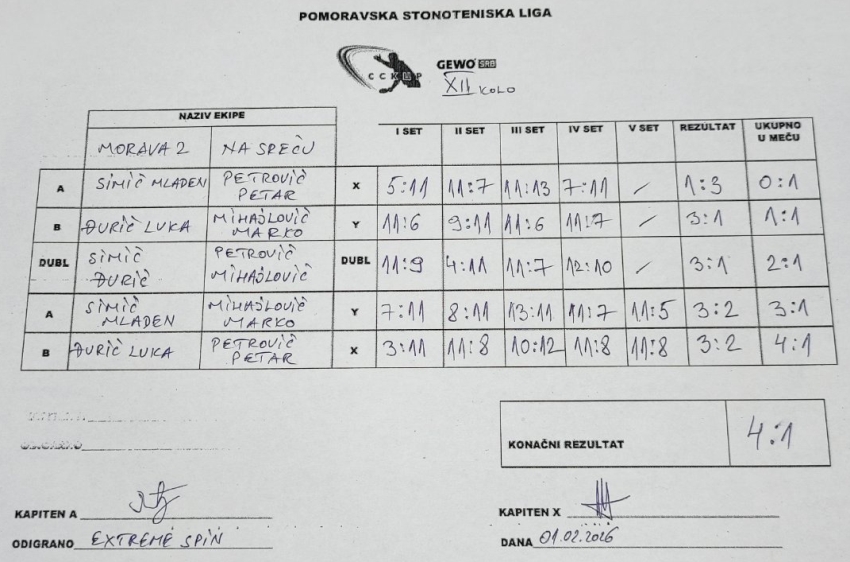 POMORAVSKA STONOTENISKA LIGA
CCK P
GEWO SRB
XII KOLO
NAZIV EKIPE
MORAVA 2 NA SPEĆU I SET II SET III SET IV SET V SET REZULTAT UKUPNO U MEČU
A SIMIĆ MLADEN PETROVIĆ PETAR X 5:11 11:7 11:13 7:11 / 1:3 0:1
B ĐURIĆ LUKA MIHAJLOVIĆ MARKO Y 11:6 9:11 11:6 11:7 / 3:1 1:1
DUBL SIMIĆ ĐURIĆ PETROVIĆ MIHAJLOVIĆ DUBL 11:9 4:11 11:7 12:10 / 3:1 2:1
A SIMIĆ MLADEN MIHAJLOVIĆ MARKO Y 7:11 8:11 13:11 11:7 11:5 3:2 3:1
B ĐURIĆ LUKA PETROVIĆ PETAR X 3:11 11:8 10:12 11:8 11:8 3:2 4:1
KONAČNI REZULTAT 4:1
KAPITEN A
KAPITEN X
ODIGRANO EXTREME SPIN
DANA 01.02.2026